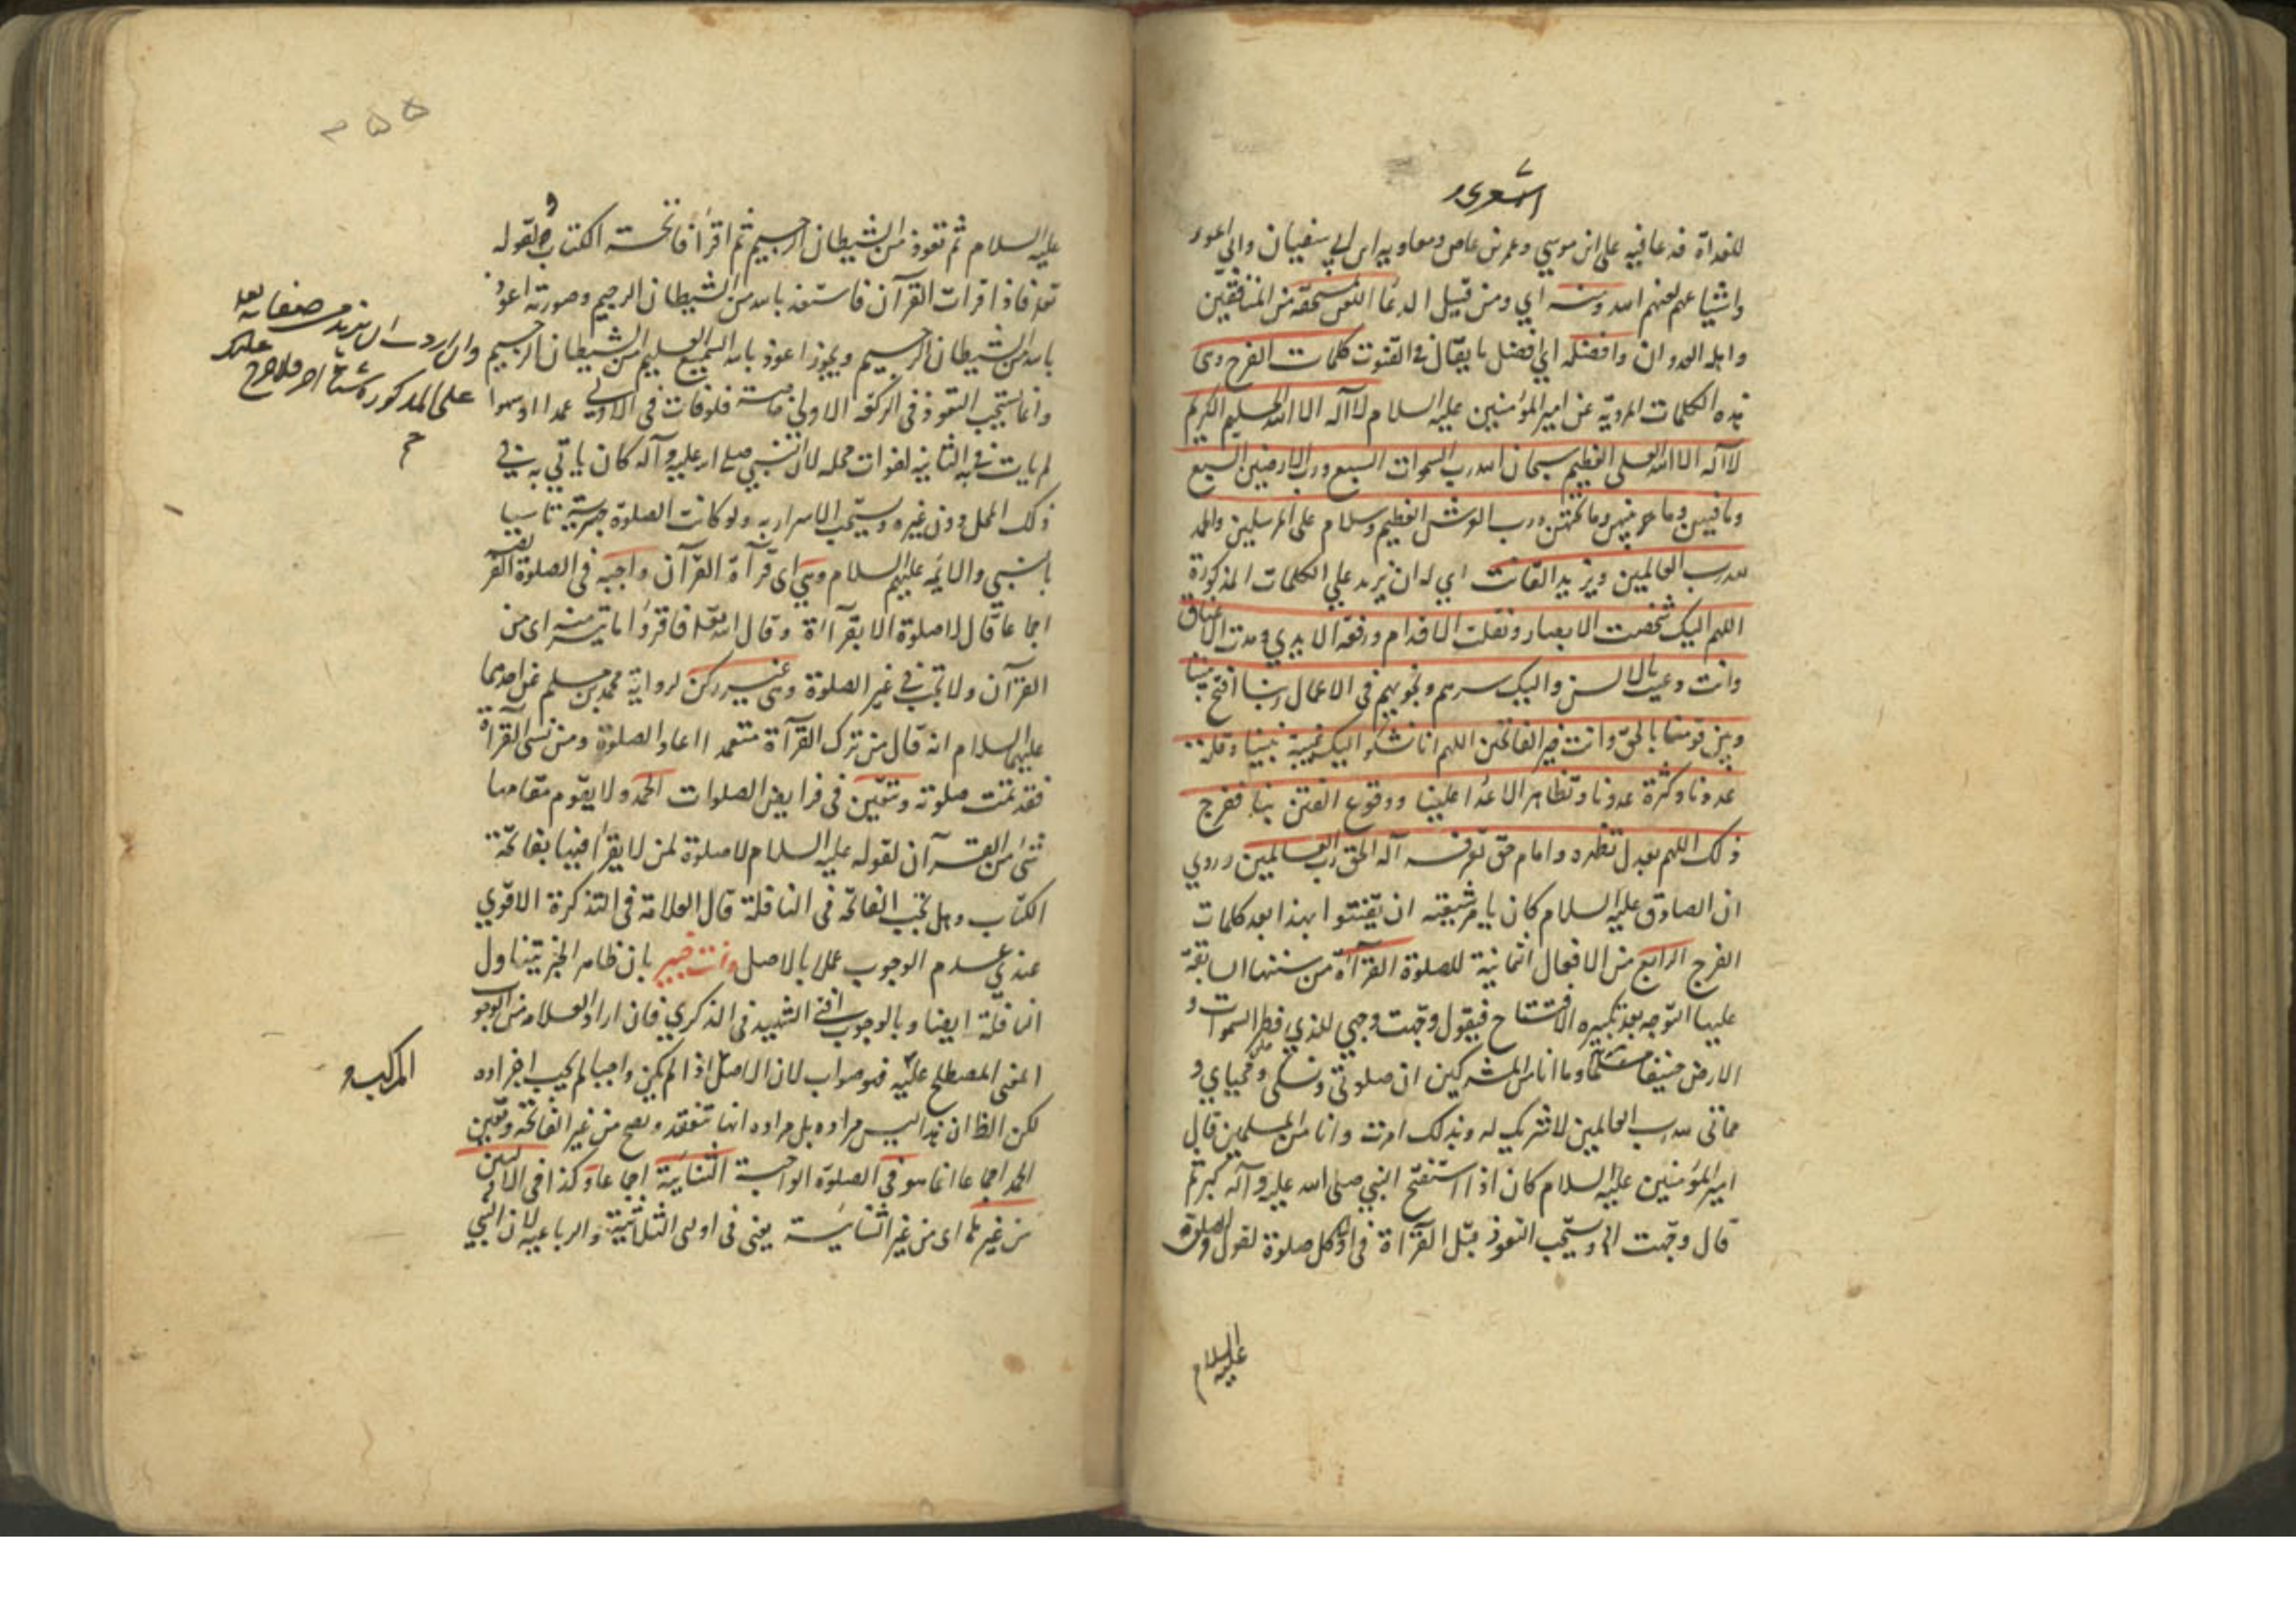 الاشعرى
للغداة فدعا فيه على ابى موسي وعمر بن عاص ومعاويه ابن ابي سفيان وابي اعور
واشياعهم لعنهم الله ومنه اي ومن قبيل الدعا اللعن لمستحقه من المنافقين
واهل العدوان وافضله اي افضل ما يقال في القنوت كلمات الفرج وهى
هذه الكلمات المروية عن امير المؤمنين عليه السلام لا اله الا الله الحليم الكريم
لا اله الا الله العلى العظيم سبحان الله رب السموات السبع ورب الارضين السبع
وما فيهن وما بينهن وما تحتهن ورب العرش العظيم وسلام على المرسلين والحمد
لله رب العالمين ويزيد القانت اي له ان يزيد علي الكلمات المذكورة
اللهم اليك شخصت الابصار ونقلت الاقدام ورفعة الايدي ومدت الاعناق
وانت دعيت بالالسن واليك سرهم ونجويهم في الاعمال ربنا افتح بيننا
وبين قومنا بالحق وانت خير الفاتحين اللهم انا نشكو اليك غيبة نبينا وقلة
عددنا وكثرة عدونا وتظاهر الاعداء علينا ووقوع الفتن بنا ففرج
ذلك اللهم بعدل تظهره وامام حق تعرفه اله الحق رب العالمين وروي
ان الصادق عليه السلام كان يامر شيعته ان يقنتوا بهذا بعد كلمات
الفرج الرابع من الافعال الثمانية للصلوة القرآءة من سننها السابقة
عليها التوجه بعد تكبيره الافتتاح فيقول وجهت وجهي للذي فطر السموات و
الارض حنيفا مسلما وما انا من المشركين ان صلوتي ونسكي ومحياي و
مماتى لله رب العالمين لا شريك له وبذلك امرت وانا من المسلمين قال
امير المؤمنين عليه السلام كان اذا استفتح النبي صلى الله عليه وآله كبر ثم
قال وجهت الخ ويستحب التعوذ قبل القرآءة فى اول كل صلوة لقول الصادق
عليه السلام
۲۵۵
عليه السلام ثم تعوذ من الشيطان الرجيم ثم اقرا فاتحة الكتاب ولقوله
تعالى فاذا قرات القرآن فاستعذ بالله من الشيطان الرجيم وصورته اعوذ
بالله من الشيطان الرجيم ويجوز اعوذ بالله السميع العليم من الشيطان الرجيم
وان اردت ان تزيد من صفاته
على المذكورة شيئا اخر فلا حرج عليك
وانما يستحب التعوذ فى الركعة الاولى خاصة فلو فات في الاولي عمدا او سهوا
لم يات به في الثانية لفوات محله لان النبى صلى الله عليه وآله كان ياتي به في
ذلك المحل دون غيره ويستحب الاسرار به ولو كانت الصلوة جهرية تاسيا
بالنبي والائمه عليهم السلام وهي اى قرآءة القرآن واجبه فى الصلوة
اجماعا قال لا صلوة الا بقرآءة وقال الله تعالى فاقرؤا ما تيسر منه اى من
القرآن ولا تجب في غير الصلوة وهى غير ركن لرواية محمد بن مسلم عن احدهما
عليهما السلام انه قال من ترك القرآءة متعمدا اعاد الصلوة ومن نسى القرآءة
فقد تمت صلوته وتتعين في فرايض الصلوات الحمد ولا يقوم مقامها
شئ من القرآن لقوله عليه السلام لا صلوة لمن لا يقرأ فيها بفاتحة
الكتاب وهل تجب الفاتحة فى النافلة قال العلامة فى التذكرة الاقوي
عندي عدم الوجوب عملا بالاصل وانت خبير بان ظاهر الخبر يتناول
النافلة ايضا وبالوجوب افتى الشهيد فى الذكري فان اراد العلامه من الوجوب
المعنى المصطلح عليه فهو صواب لان الاصل اذا لم يكن واجبا لم يجب اجزاده
المركب و
لكن الظ ان هذا ليس مراده بل مراده انها تنعقد وتصح من غير الفاتحة وتعين
الحمد اجماعا انما هو في الصلوة الواجبة الثنائية اجماعا وكذا في الاوليين
من غيرها اى من غير الثنائية يعنى فى اولى الثلاثية والرباعية لان النبي